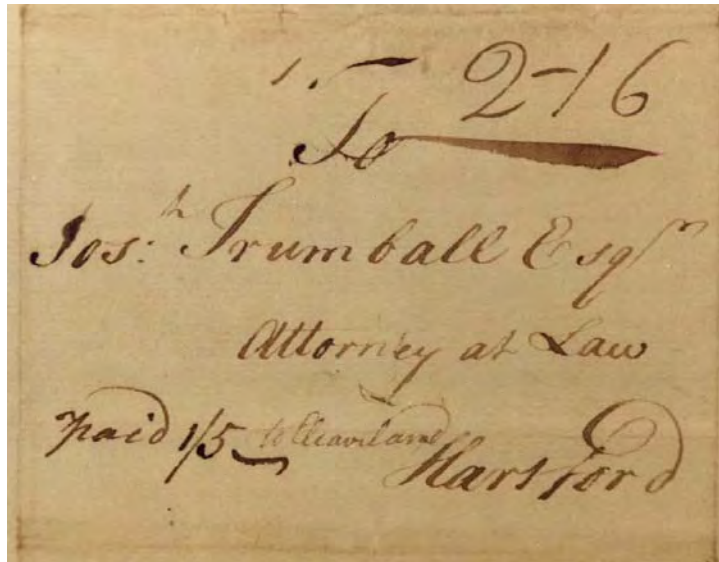 2-16
To
Josh: Trumball Esqr
Attorney at Law
paid 1/5 to Cleaveland
Hartford